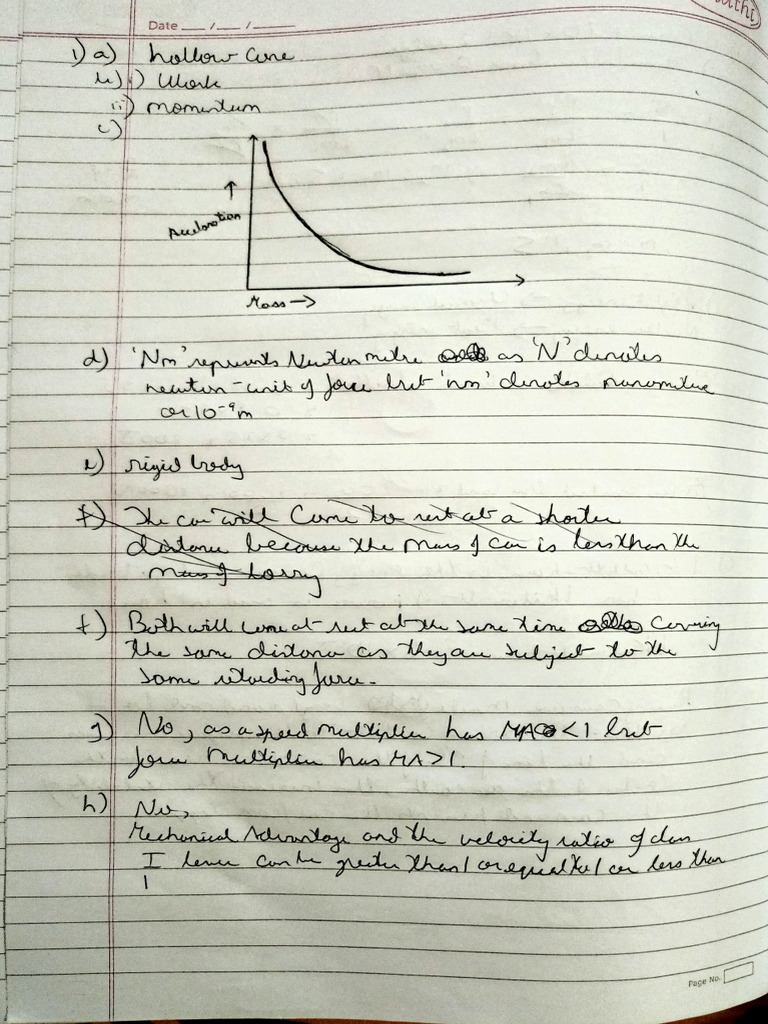 Date __/__/__
1) a) hollow cone
b) i) Work
ii) momentum
c)
Acceleration
Mass →
d) 'Nm' represents Newton metre as 'N' denotes
newton - unit of force but 'nm' denotes nanometre
or 10⁻⁹m
e) rigid body
f) The car will come to rest at a shorter
distance because the mass of car is less than the
mass of lorry
f) Both will come at rest at the same time covering
the same distance as they are subject to the
same retarding force.
g) No, as a speed multiplier has MA < 1 but
force multiplier has MA > 1.
h) No,
Mechanical Advantage and the velocity ratio of class
I lever can be greater than 1 or equal to 1 or less than
1
Page No.